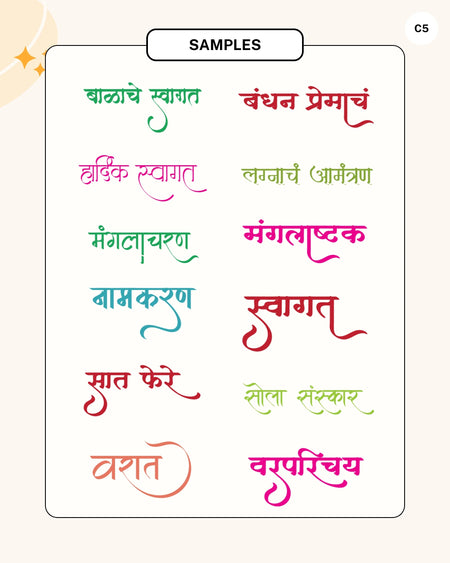 C5
SAMPLES
बाळाचे स्वागत
बंधन प्रेमाचं
हार्दिक स्वागत
लग्नाचं आमंत्रण
मंगलाचरण
मंगलाष्टक
नामकरण
स्वागत
सात फेरे
सोला संस्कार
वरात
वरपरिचय